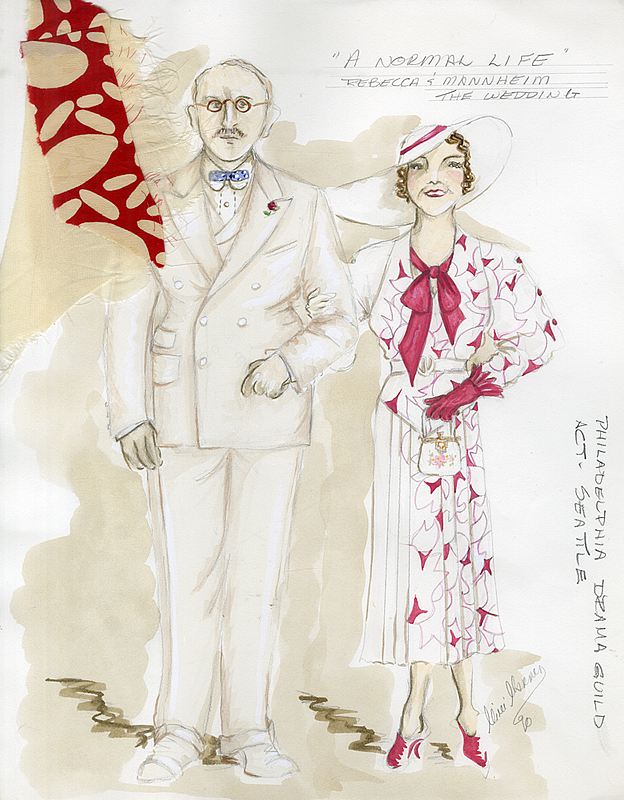 "A NORMAL LIFE"
REBECCA & MANNHEIM
THE WEDDING
PHILADELPHIA DRAMA GUILD
ACT. SEATTLE
90